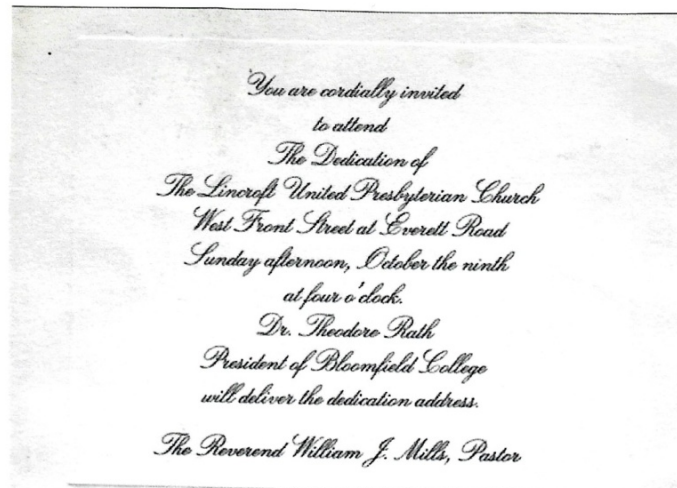 You are cordially invited
to attend
The Dedication of
The Lincroft United Presbyterian Church
West Front Street at Everett Road
Sunday afternoon, October the ninth
at four o'clock.
Dr. Theodore Rath
President of Bloomfield College
will deliver the dedication address.
The Reverend William J. Mills, Pastor